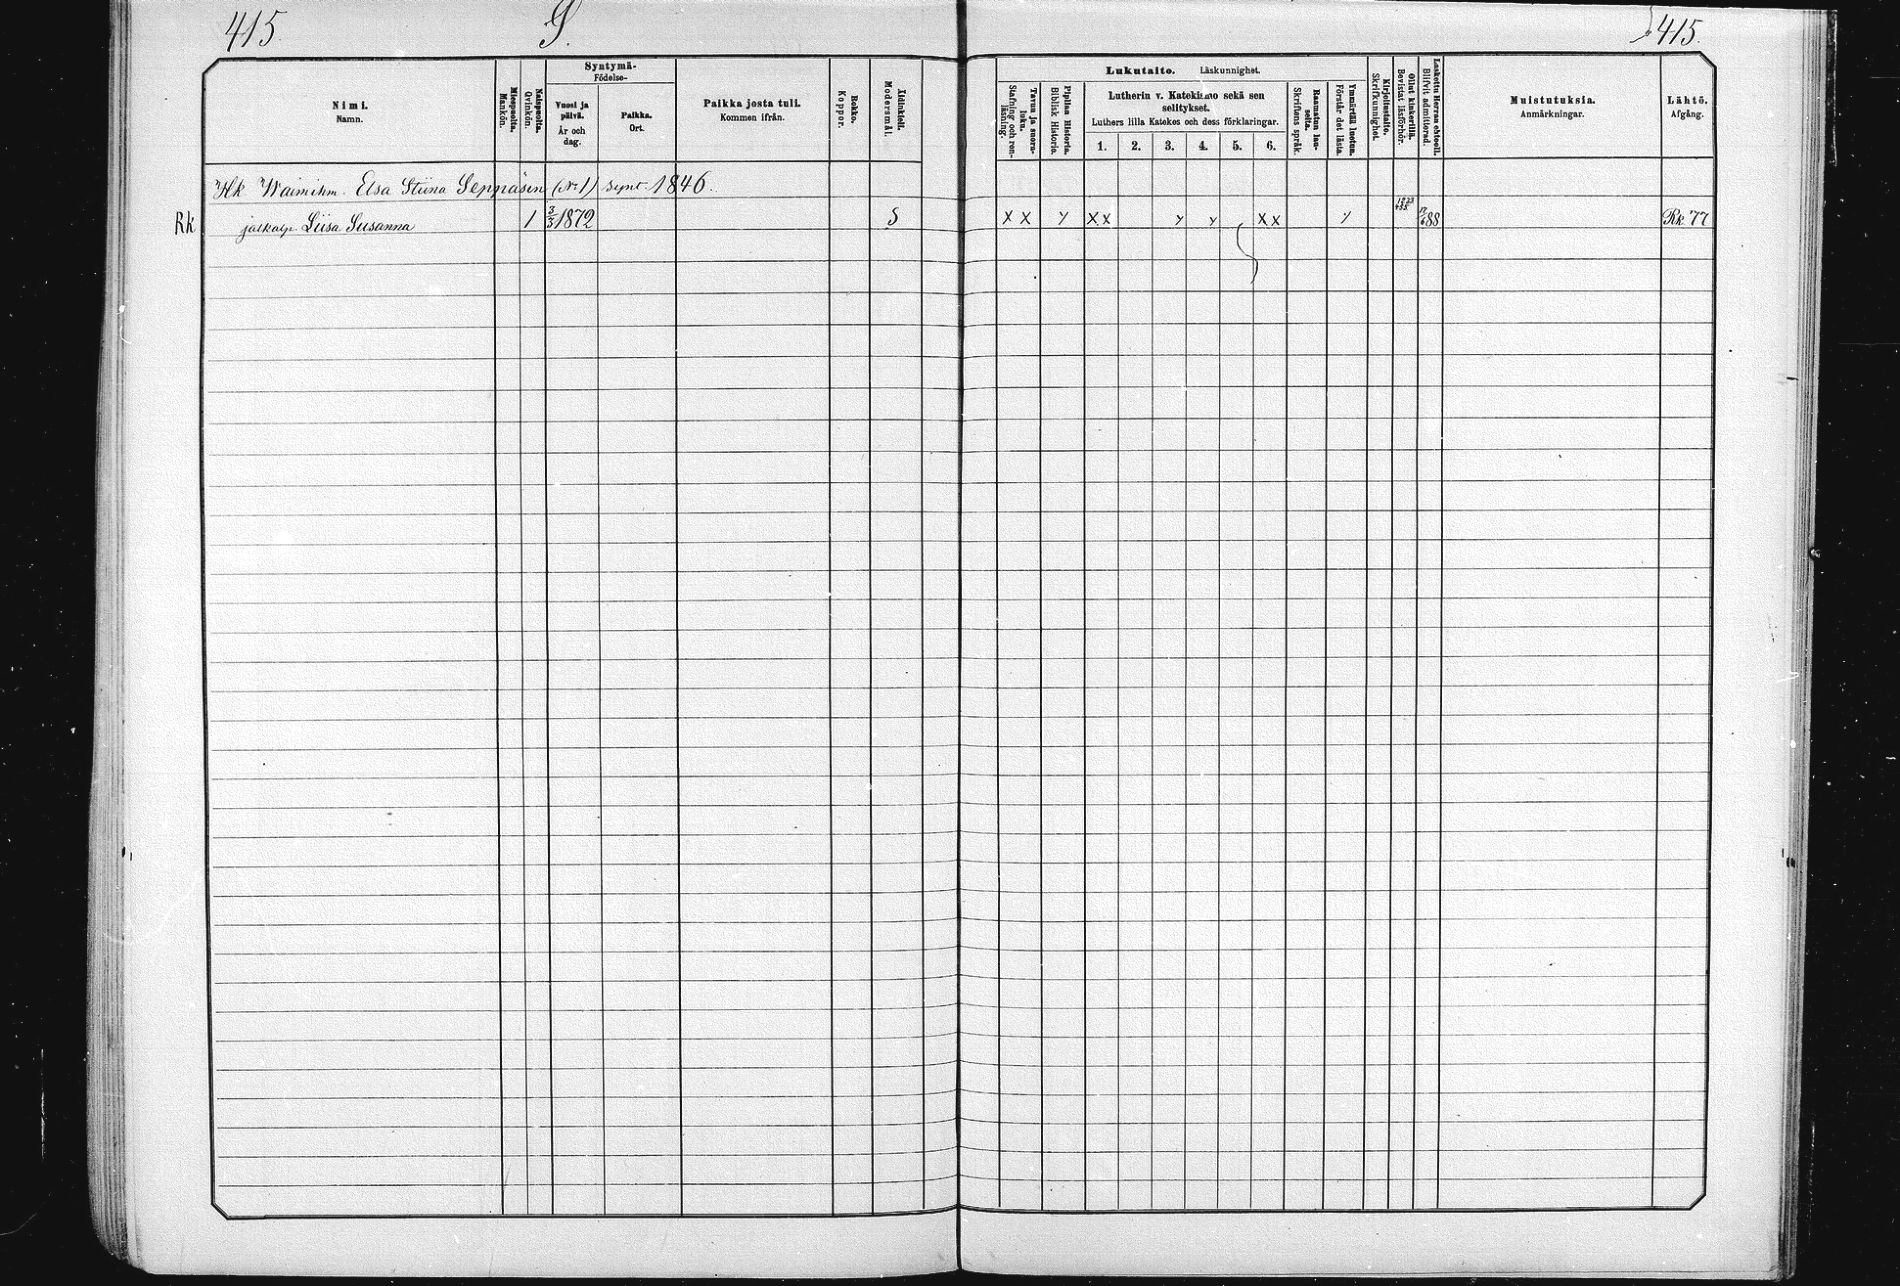 415. S. 415.
Nimi.
Namn.
Miespuolta.
Mankön.
Naispuolta.
Qvinkön.
Syntymä-
Födelse-
Vuosi ja päivä.
År och dag.
Paikka.
Ort.
Paikka josta tuli.
Kommen ifrån.
Rokko.
Koppor.
Äidinkieli.
Modersmål.
Lukutaito. Läskunnighet.
Tavuu ja suoru-luku.
Stafning och ren-läsning.
Piplian Historia.
Biblisk Historie.
Lutherin v. Katekismo sekä sen selitykset.
Luthers lilla Katekes och dess förklaringar.
1. 2. 3. 4. 5. 6.
Raamatun lau-seita.
Skriftens språk.
Ymmärtää luetun.
Förstår det lästa.
Kirjoitustaito.
Skrifkunnighet.
Ollut kinkerillä.
Bevistat läsförhör.
Laskettu Herran ehtooll.
Blifvit admitterad.
Muistutuksia.
Anmärkningar.
Lähtö.
Afgång.
Hk Waimoihm. Elsa Stiina Seppäsen (No 1) synt. 1846.
Rk jälkalp. Liisa Susanna 1 3/3 1872 S x x y x x y y x x y 88 Rk 77